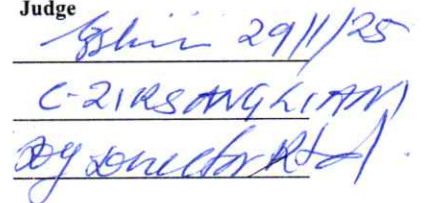 Judge
29/11/25
C-ZIRSANGLIANI
Dy Director Rtd.